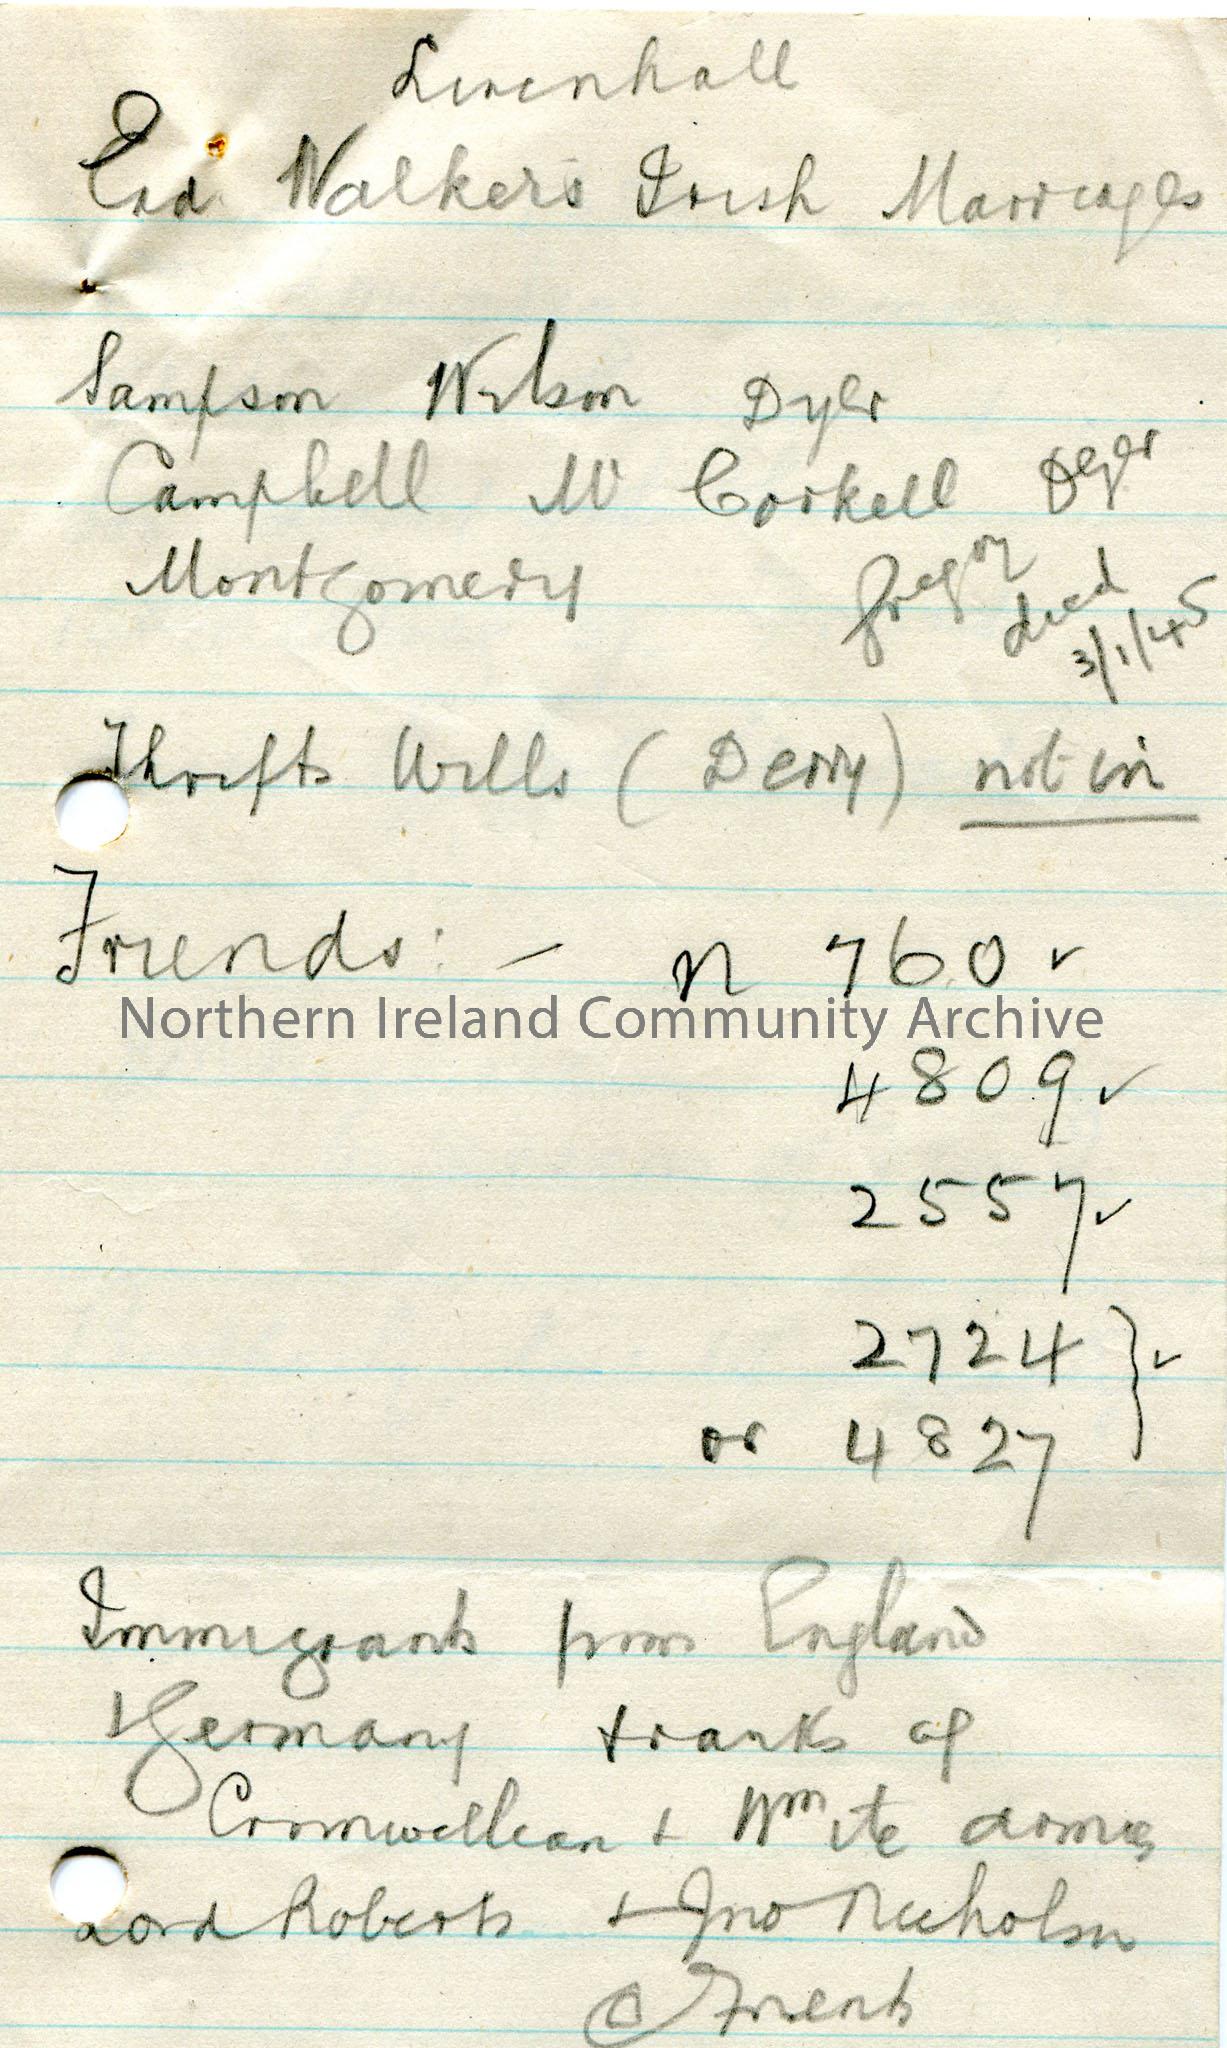 Walker's Irish Marriages
Sampson Wilson Dyer
Campbell Mc Corkell Dyer
Montgomery Gregory died 3/1/45
Thrifts Wills (Derry) not in
Friends: - n 760 ✓
Northern Ireland Community Archive
4809 ✓
2557 ✓
2724 } ✓
or 4827
Immigrants from England
+ Germany + ranks of
Cromwellian + Wm ite armies
Lord Roberts + Jno Nicholson